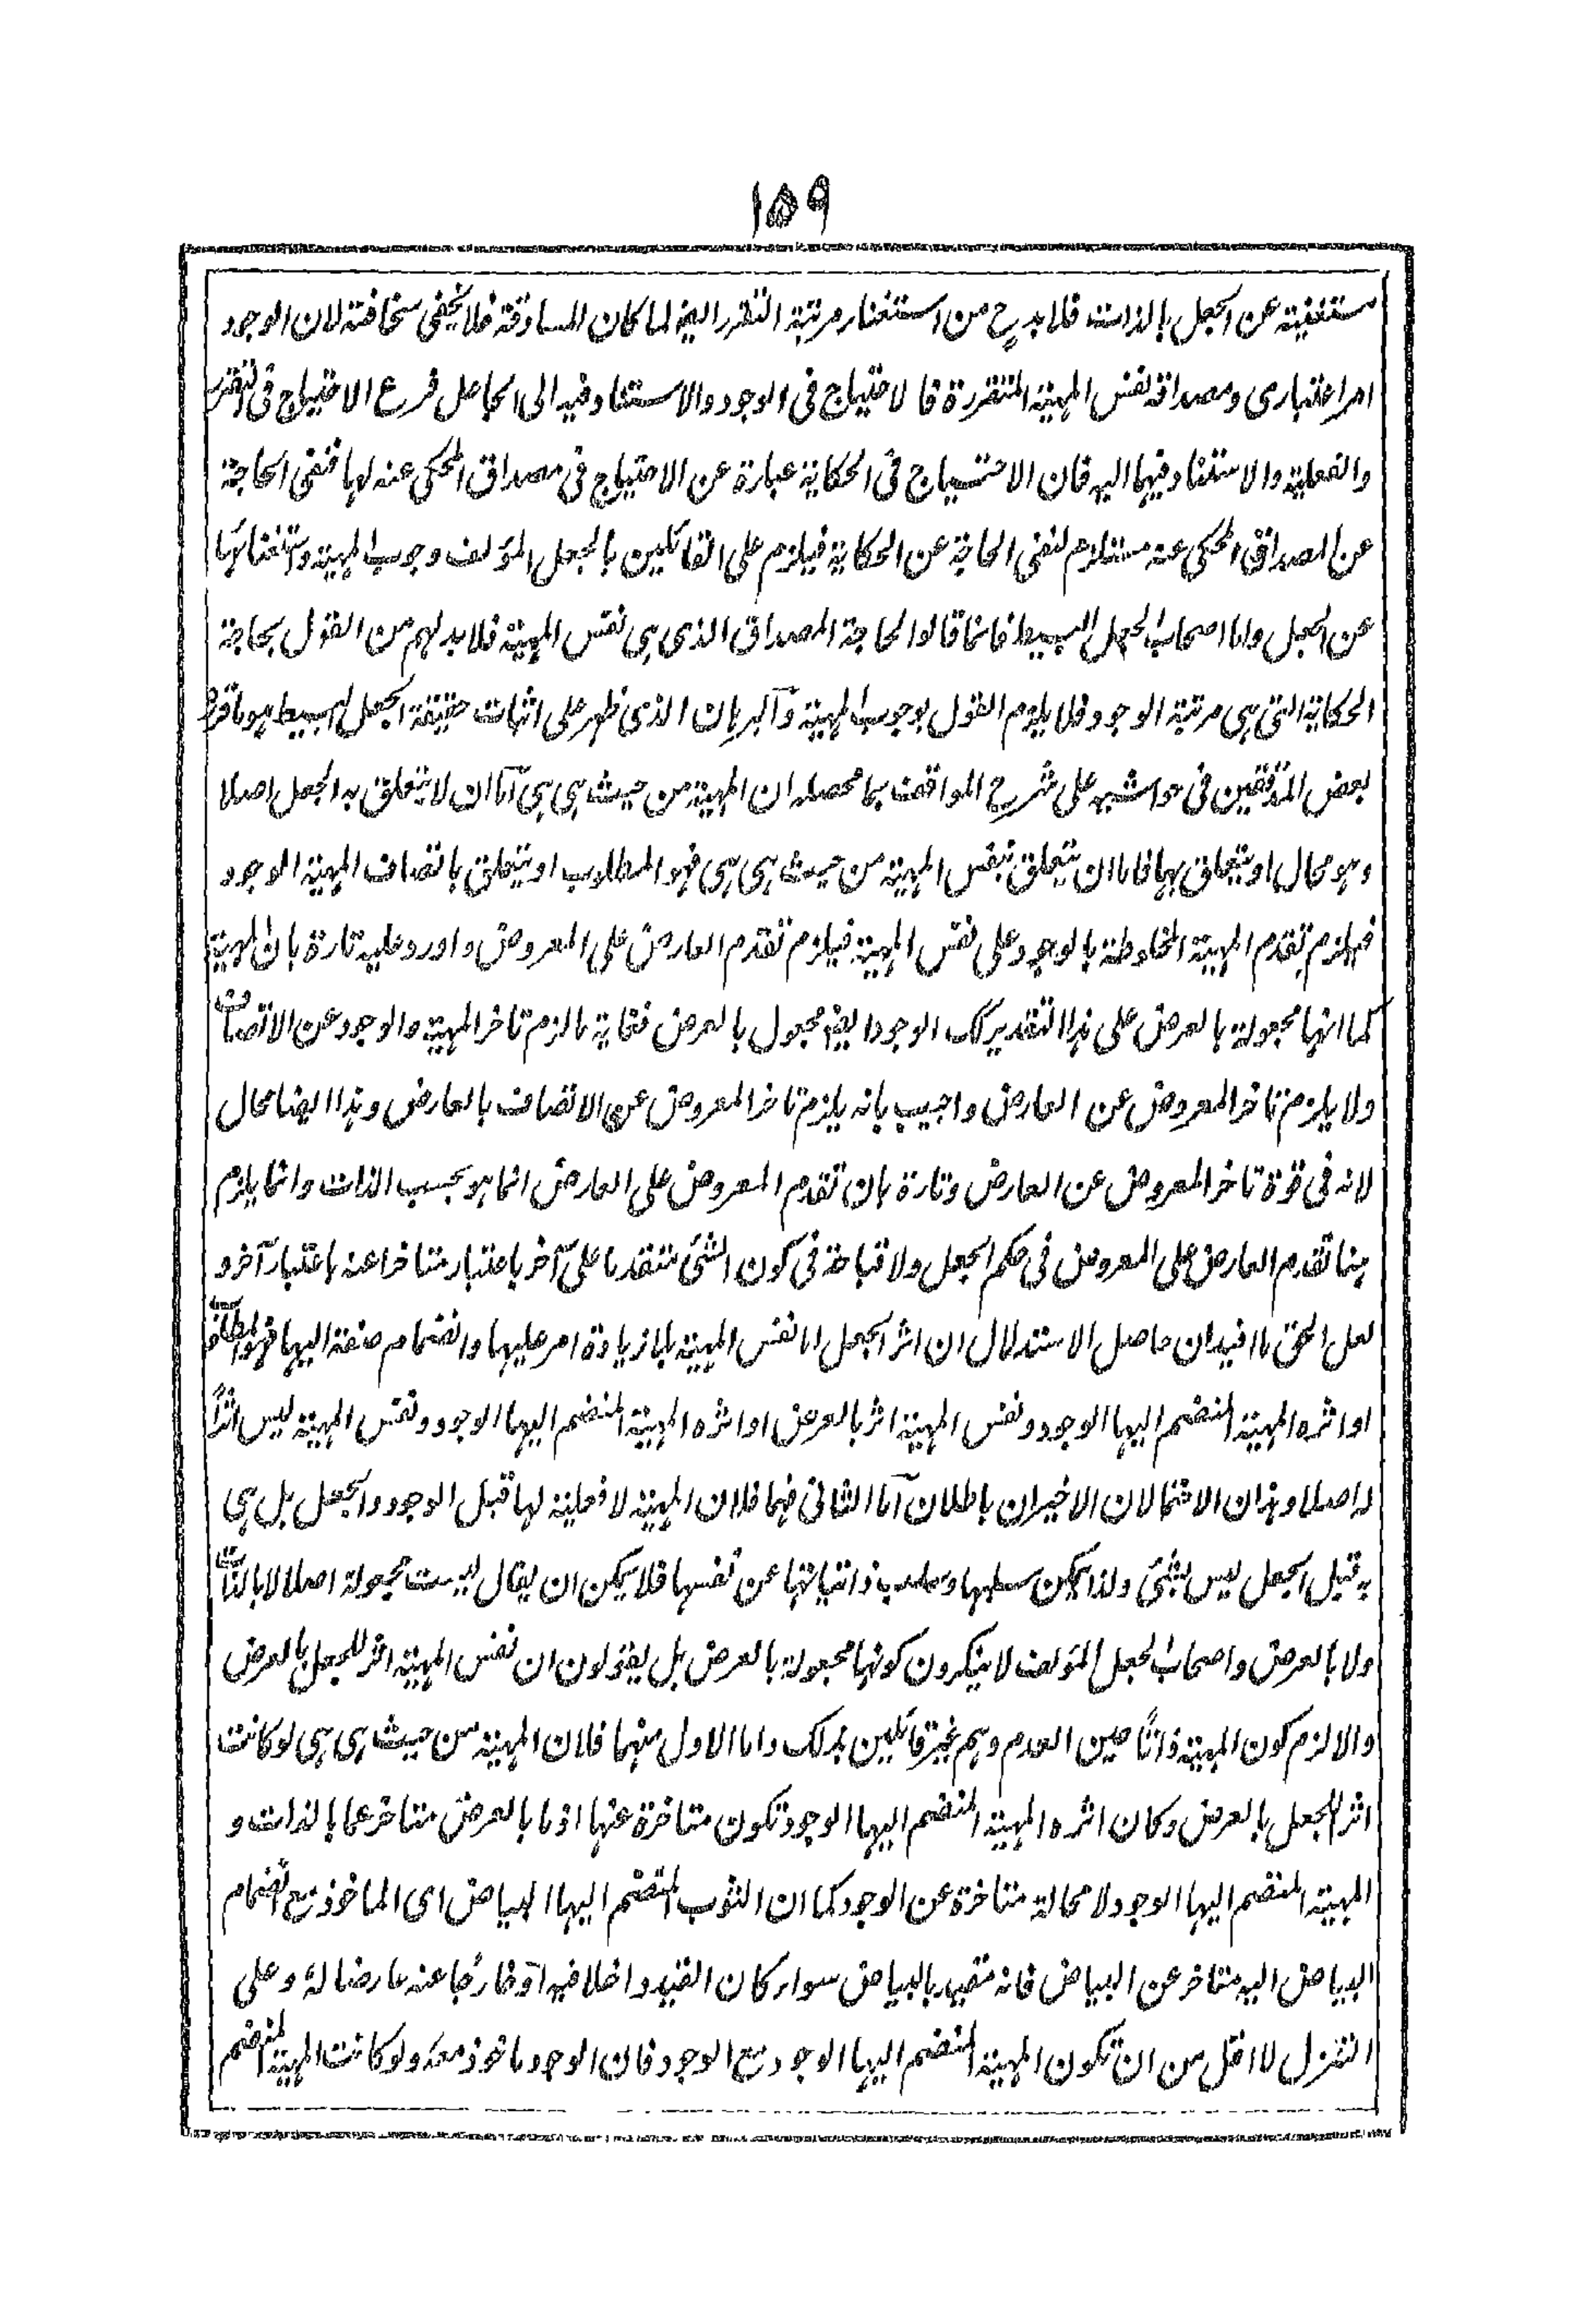 ١٥٩
مستغنية عن الجعل بالذات فلا بد ح من استغناء مرتبة التقرر ايضا لما كان المساوقة فلا يخفى سخافته لان الوجود
امر اعتبارى ومصداقه نفس المهية المتقررة فالاحتياج فى الوجود والاستناد فيه الى الجاعل فرع الاحتياج فى التقرر
والفعلية والاستناد فيهما اليه فان الاحتياج فى الحكاية عبارة عن الاحتياج فى مصداق المحكى عنه لها فنفى الحاجة
عن المصداق المحكى عنه مستلزم لنفى الحاجة عن الحكاية فيلزم على القائلين بالجعل المؤلف وجوب المهية واستغنائها
عن الجعل واما اصحاب الجعل البسيط فانما قالوا لحاجة المصداق الذى هى نفس المهية فلا بد لهم من القول بحاجة
الحكاية التى هى مرتبة الوجود فلا يلزم القول بوجوب المهية وآلبرهان الذى ظهر على اثبات حقيقة الجعل البسيط هو ما قرره
بعض المدققين فى حواشيه على شرح المواقف بما محصله ان المهية من حيث هى هى آما ان لا يتعلق به الجعل اصلا
وهو محال او يتعلق بها فاما ان يتعلق بنفس المهية من حيث هى هى فهو المطلوب او يتعلق باتصاف المهية الوجود
فيلزم تقدم المهية المخلوطة بالوجود على نفس المهية فيلزم تقدم العارض على المعروض واورد عليه تارة بان المهية
كما انها مجعولة بالعرض على هذا التقدير كك الوجود ايضا مجعول بالعرض فغاية ما لزم تاخر المهية والوجود عن الاتصاف
ولا يلزم تاخر المعروض عن العارض واجيب بانه يلزم تاخر المعروض عن الاتصاف بالعارض وهذا ايضا محال
لانه فى قوة تاخر المعروض عن العارض وتارة بان تقدم المعروض على العارض انما هو بحسب الذات وانما يلزم
هنا تقدم العارض على المعروض فى حكم الجعل ولا قباحة فى كون الشئ متقدما على آخر باعتبار متاخرا عنه باعتبار آخر و
لعل الحق ما افيد ان حاصل الاستدلال ان اثر الجعل اما نفس المهية بلا زيادة امر عليها وانضمام صفة اليها فهو المطلوب
او اثره المهية المنضم اليها الوجود ونفس المهية اثر بالعرض او اثره المهية المنضم اليها الوجود ونفس المهية ليس اثراً
له اصلا وهذان الاحتمالان الاخيران باطلان آما الثانى منهما فلان المهية لا فعلية لها قبل الوجود والجعل بل هى
قبل الجعل ليس بشئ ولذا يمكن سلبها وسلب ذاتياتها عن نفسها فلا يمكن ان يقال ليست مجعولة اصلا لا بالذات
ولا بالعرض واصحاب الجعل المؤلف لا ينكرون كونها مجعولة بالعرض بل يقولون ان نفس المهية اثر للجعل بالعرض
والا لزم كون المهية ذاتاً حين العدم وهم غير قائلين بذلك واما الاول منهما فلان المهية من حيث هى هى لو كانت
اثر الجعل بالعرض وكان اثره المهية المنضم اليها الوجود تكون متاخرة عنها اذ ما بالعرض متاخر عما بالذات و
المهية المنضم اليها الوجود لا محالة متاخرة عن الوجود كما ان الثوب المنضم اليها البياض اى الماخوذ مع انضمام
البياض اليه متاخر عن البياض فانه مقيد بالبياض سواء كان القيد داخلا فيه آو خارجا عنه عارضا له وعلى
التنزل لا اقل من ان تكون المهية المنضم اليها الوجود مع الوجود فان الوجود ماخوذ معه ولو كانت المهية المنضم